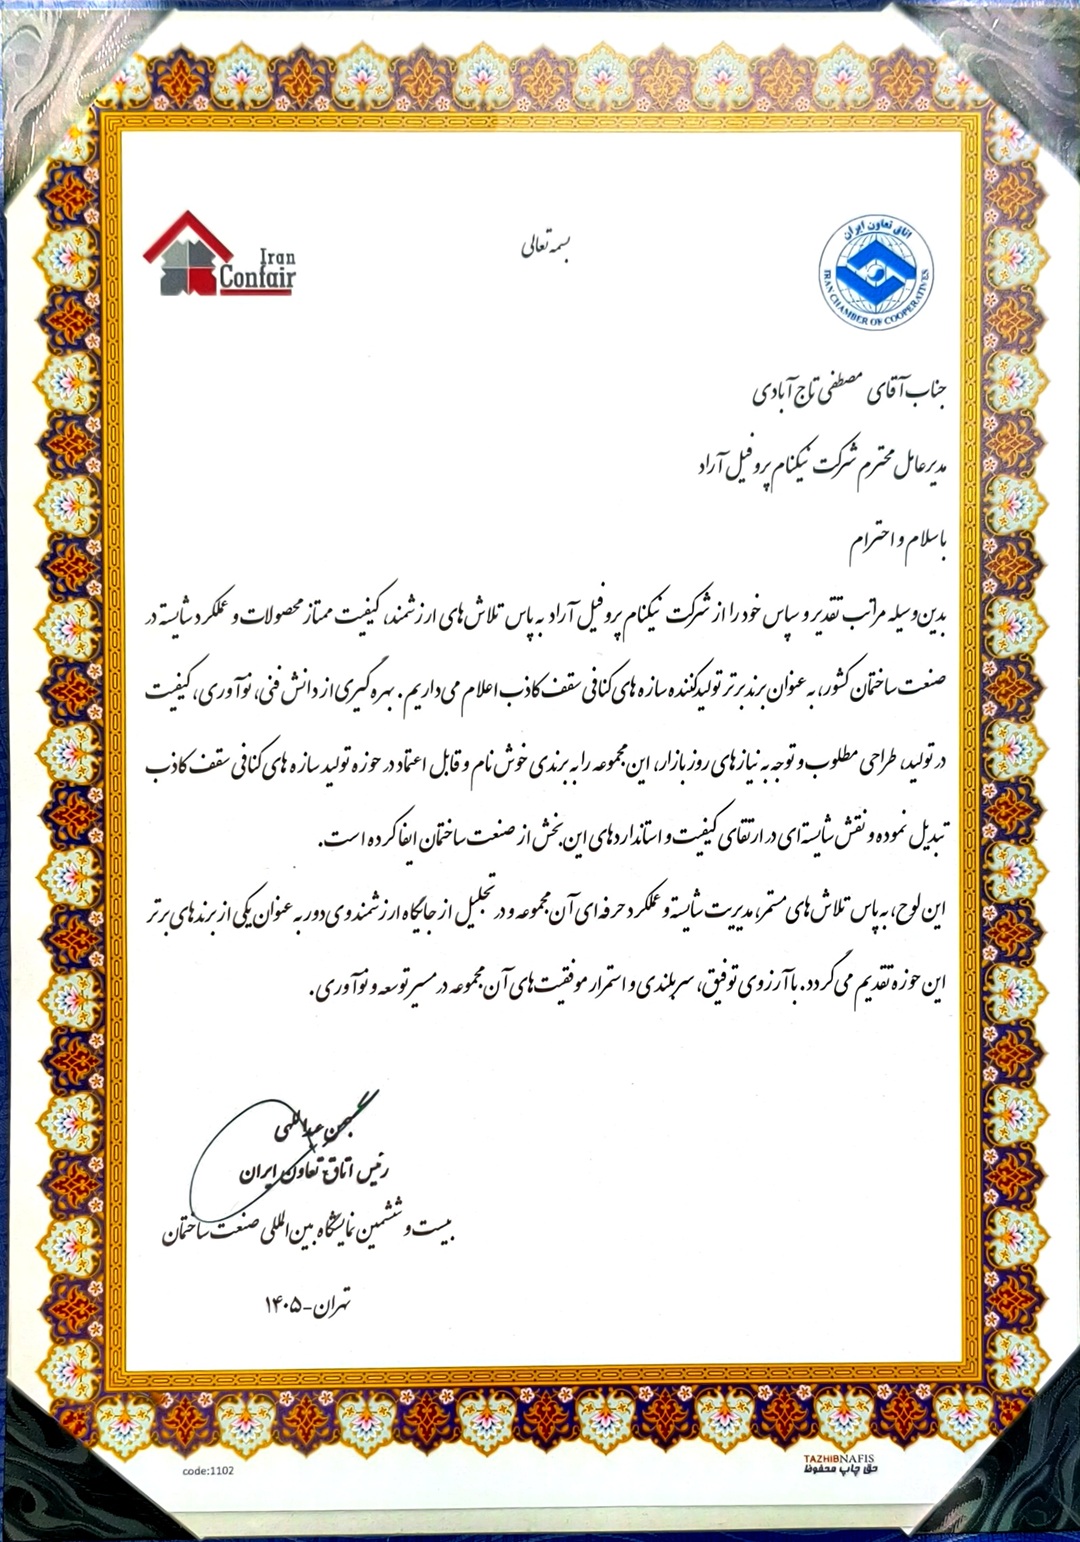 بسمه تعالی
Iran
Confair
اتاق تعاون ایران
IRAN CHAMBER OF COOPERATIVES
جناب آقای مصطفی تاج آبادی
مدیرعامل محترم شرکت نیکنام پروفیل آراد
با سلام و احترام
بدین وسیله مراتب تقدیر و سپاس خود را از شرکت نیکنام پروفیل آراد به پاس تلاش های ارزشمند، کیفیت ممتاز محصولات و عملکرد شایسته در
صنعت ساختمان کشور، به عنوان برند برتر تولیدکننده سازه های کناف سقف کاذب اعلام می داریم. بهره گیری از دانش فنی، نوآوری، کیفیت
در تولید، طراحی مطلوب و توجه به نیازهای روز بازار، این مجموعه را به برندی خوش نام و قابل اعتماد در حوزه تولید سازه های کنافی سقف کاذب
تبدیل نموده و نقش شایسته ای در ارتقای کیفیت و استانداردهای این بخش از صنعت ساختمان ایفا کرده است.
این لوح، به پاس تلاش های مستمر، مدیریت شایسته و عملکرد حرفه ای آن مجموعه و در تجلیل از جایگاه ارزشمند وی در به عنوان یکی از برندهای برتر
این حوزه تقدیم می گردد. با آرزوی توفیق، سربلندی و استمرار موفقیت های آن مجموعه در مسیر توسعه و نوآوری.
بهمن عبداللهی
رئیس اتاق تعاون ایران
بیست و ششمین نمایشگاه بین المللی صنعت ساختمان
تهران-۱۴۰۵
code:1102
TAZHIBNAFIS
حق چاپ محفوظ